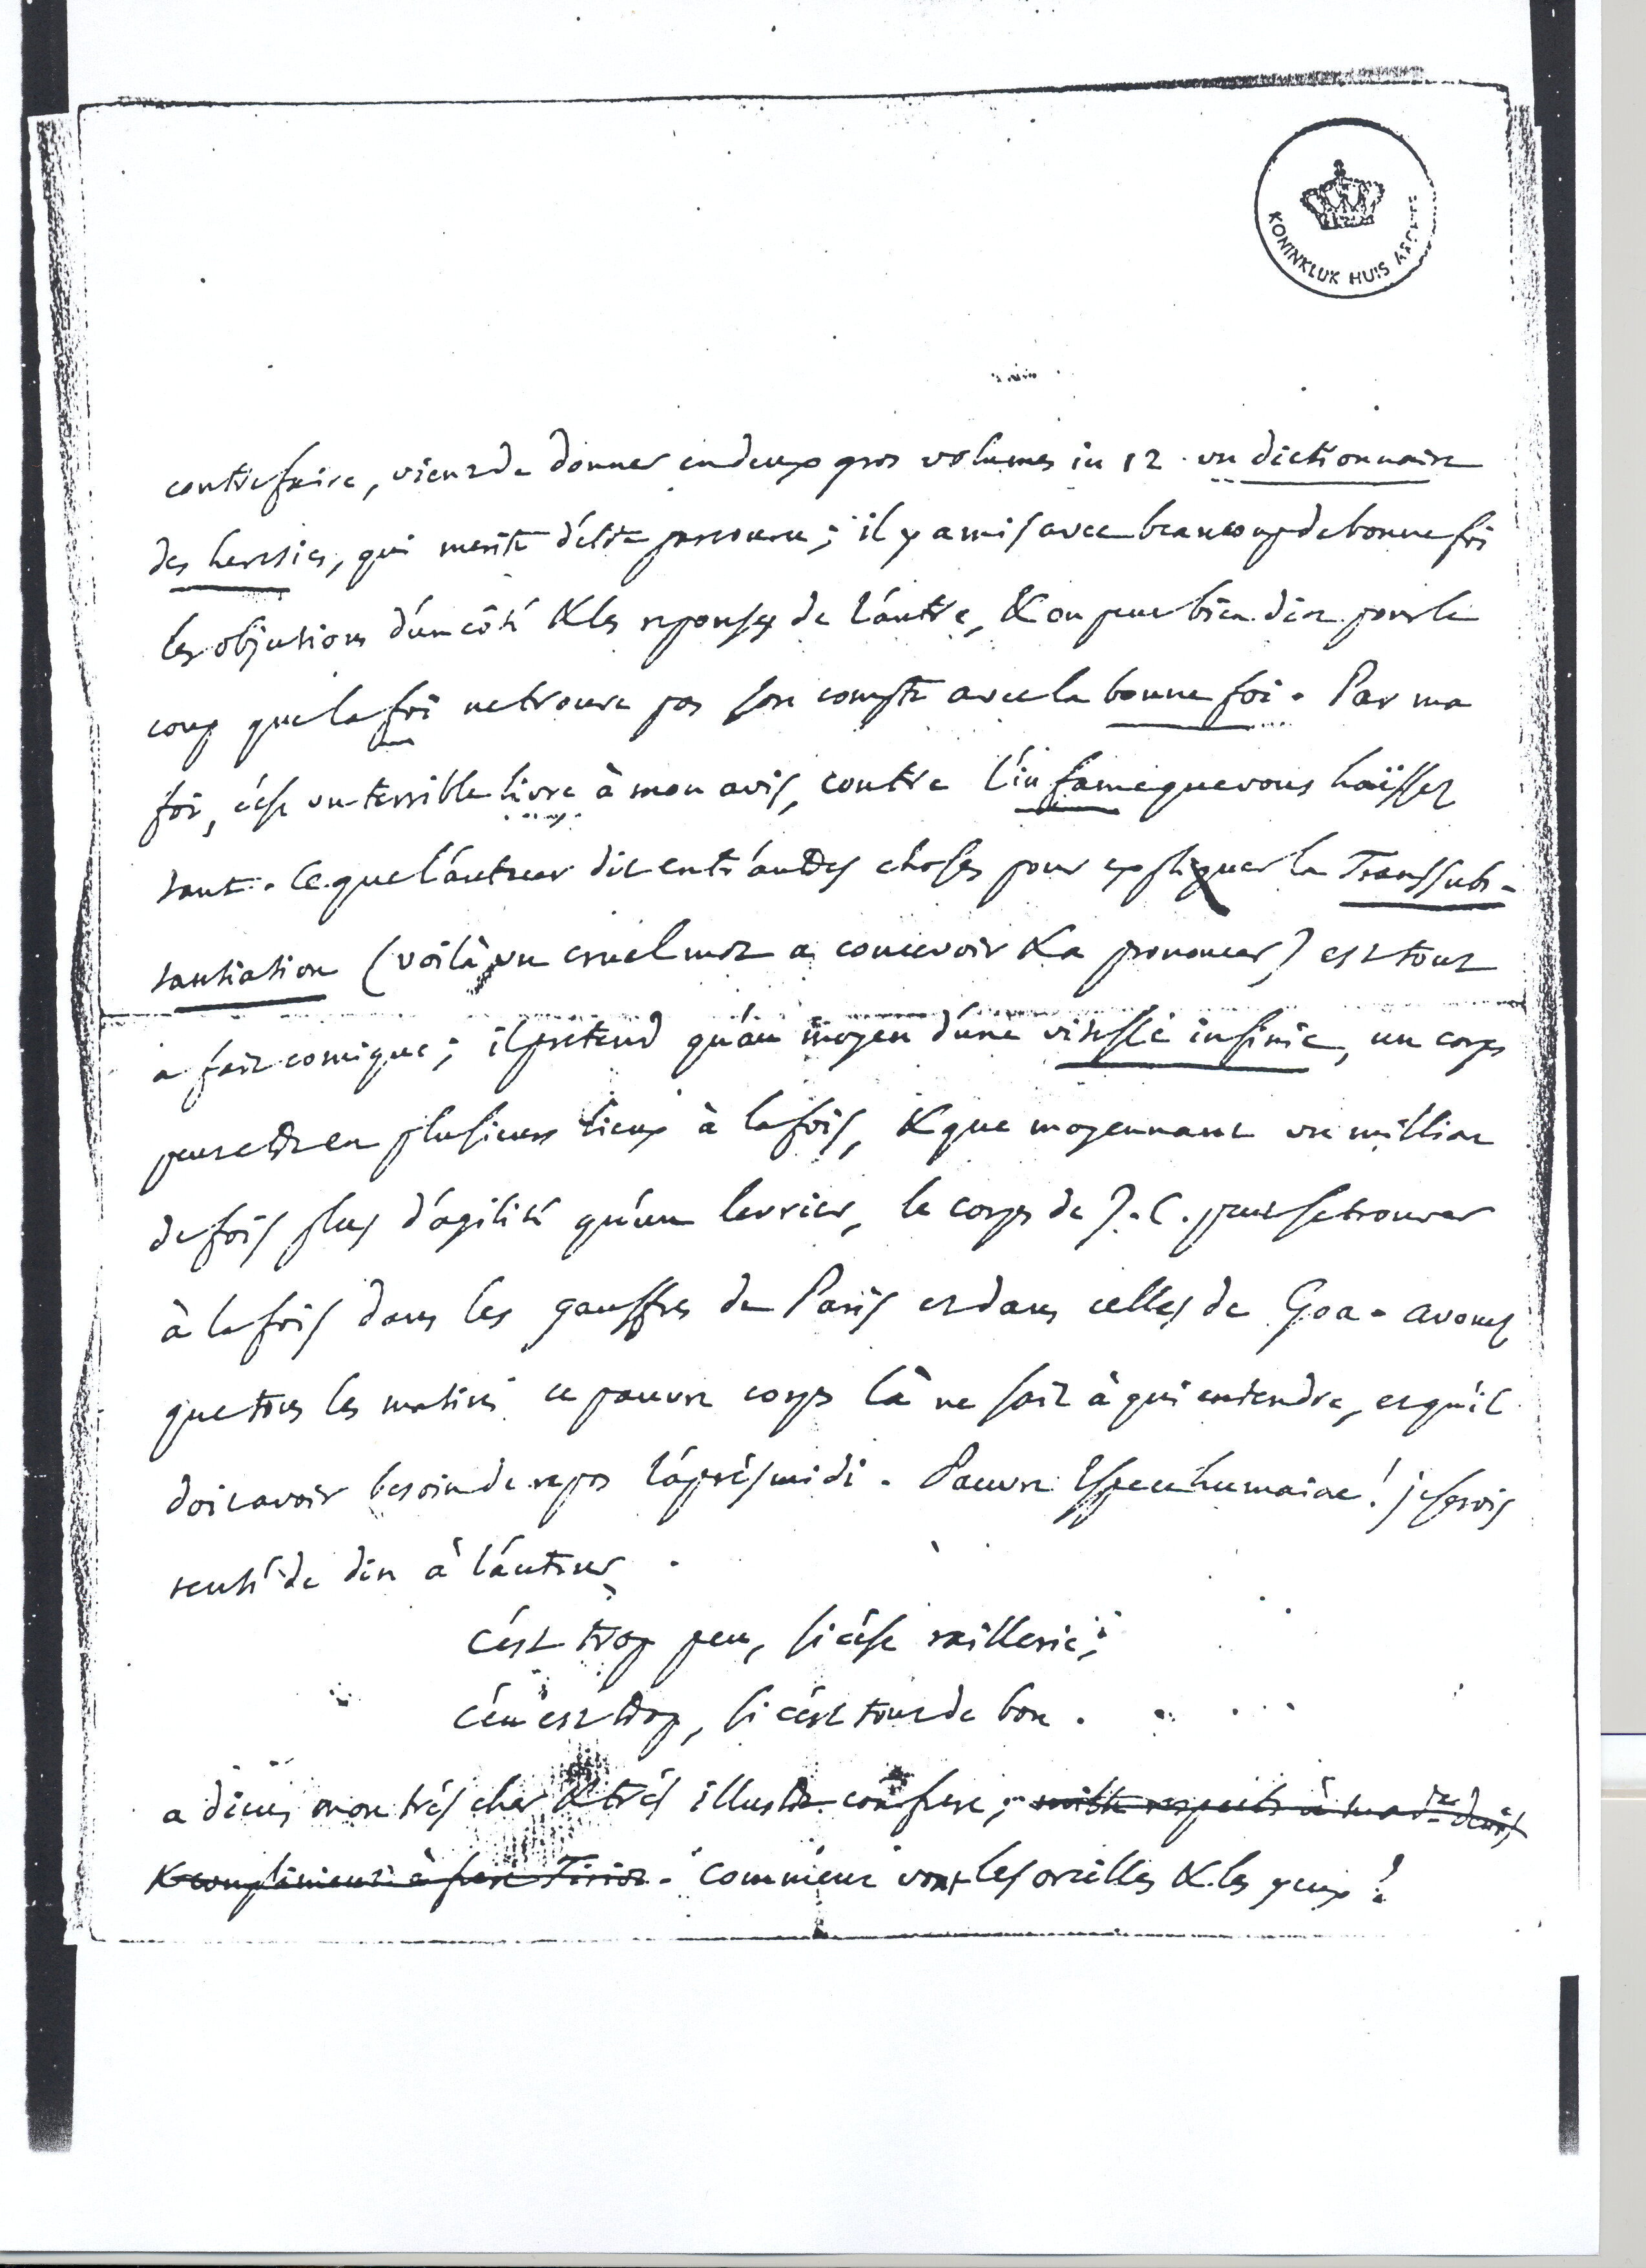 KONINKLIJK HUIS ARCHIEF
contrefaire, vient de donner en deux gros volumes in 12 un dictionnaire
des heresies, qui merite d'être parcouru; il y a mis avec beaucoup de bonne foi
les objections d'un côté & les reponses de l'autre, & on peut bien dire pour le
coup que la foi ne trouve pas son compte avec la bonne foi. Par ma
foi, c'est un terrible livre à mon avis, contre l'infame que vous haïssez
tant. Ce que l'auteur dit entr'autres choses pour expliquer la Transsubs-
tantiation (voilà un cruel mot a concevoir & a prononcer) est tout
a fait comique; il pretend qu'au moyen d'une vitesse infinie, un corps
peut etre en plusieurs lieux à la fois, & que moyennant un milliar
de fois plus d'agilité qu'un levrier, le corps de J. C. peut se trouver
à la fois dans les gauffres de Paris et dans celles de Goa. avouez
que tous les matins ce pauvre corps là ne sait à qui entendre, et qu'il
doit avoir besoin de repos l'après midi. Pauvre Espece humaine! je serois
tenté de dire à l'auteur
C'est trop peu, si c'est raillerie;
C'en est trop, si c'est tout de bon.
a dieu, mon très cher & très illustre confrere; mille respects à mad.e denis,
& compliments à frere Tiriot. Comment vont les oreilles & les yeux?